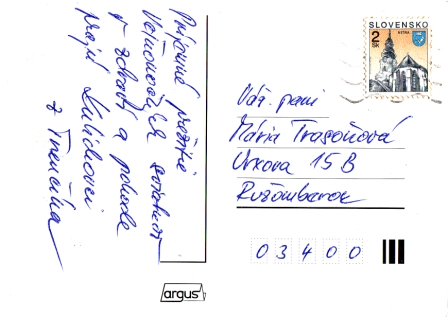 Príjemné prežitie
Veľkonočných sviatkov
v zdraví a pohode
prajú
z Trenčína
SLOVENSKO
NITRA
2
SK
Váž. pani
Mária Trasoňová
15 B
Ružomberok
03400
argus